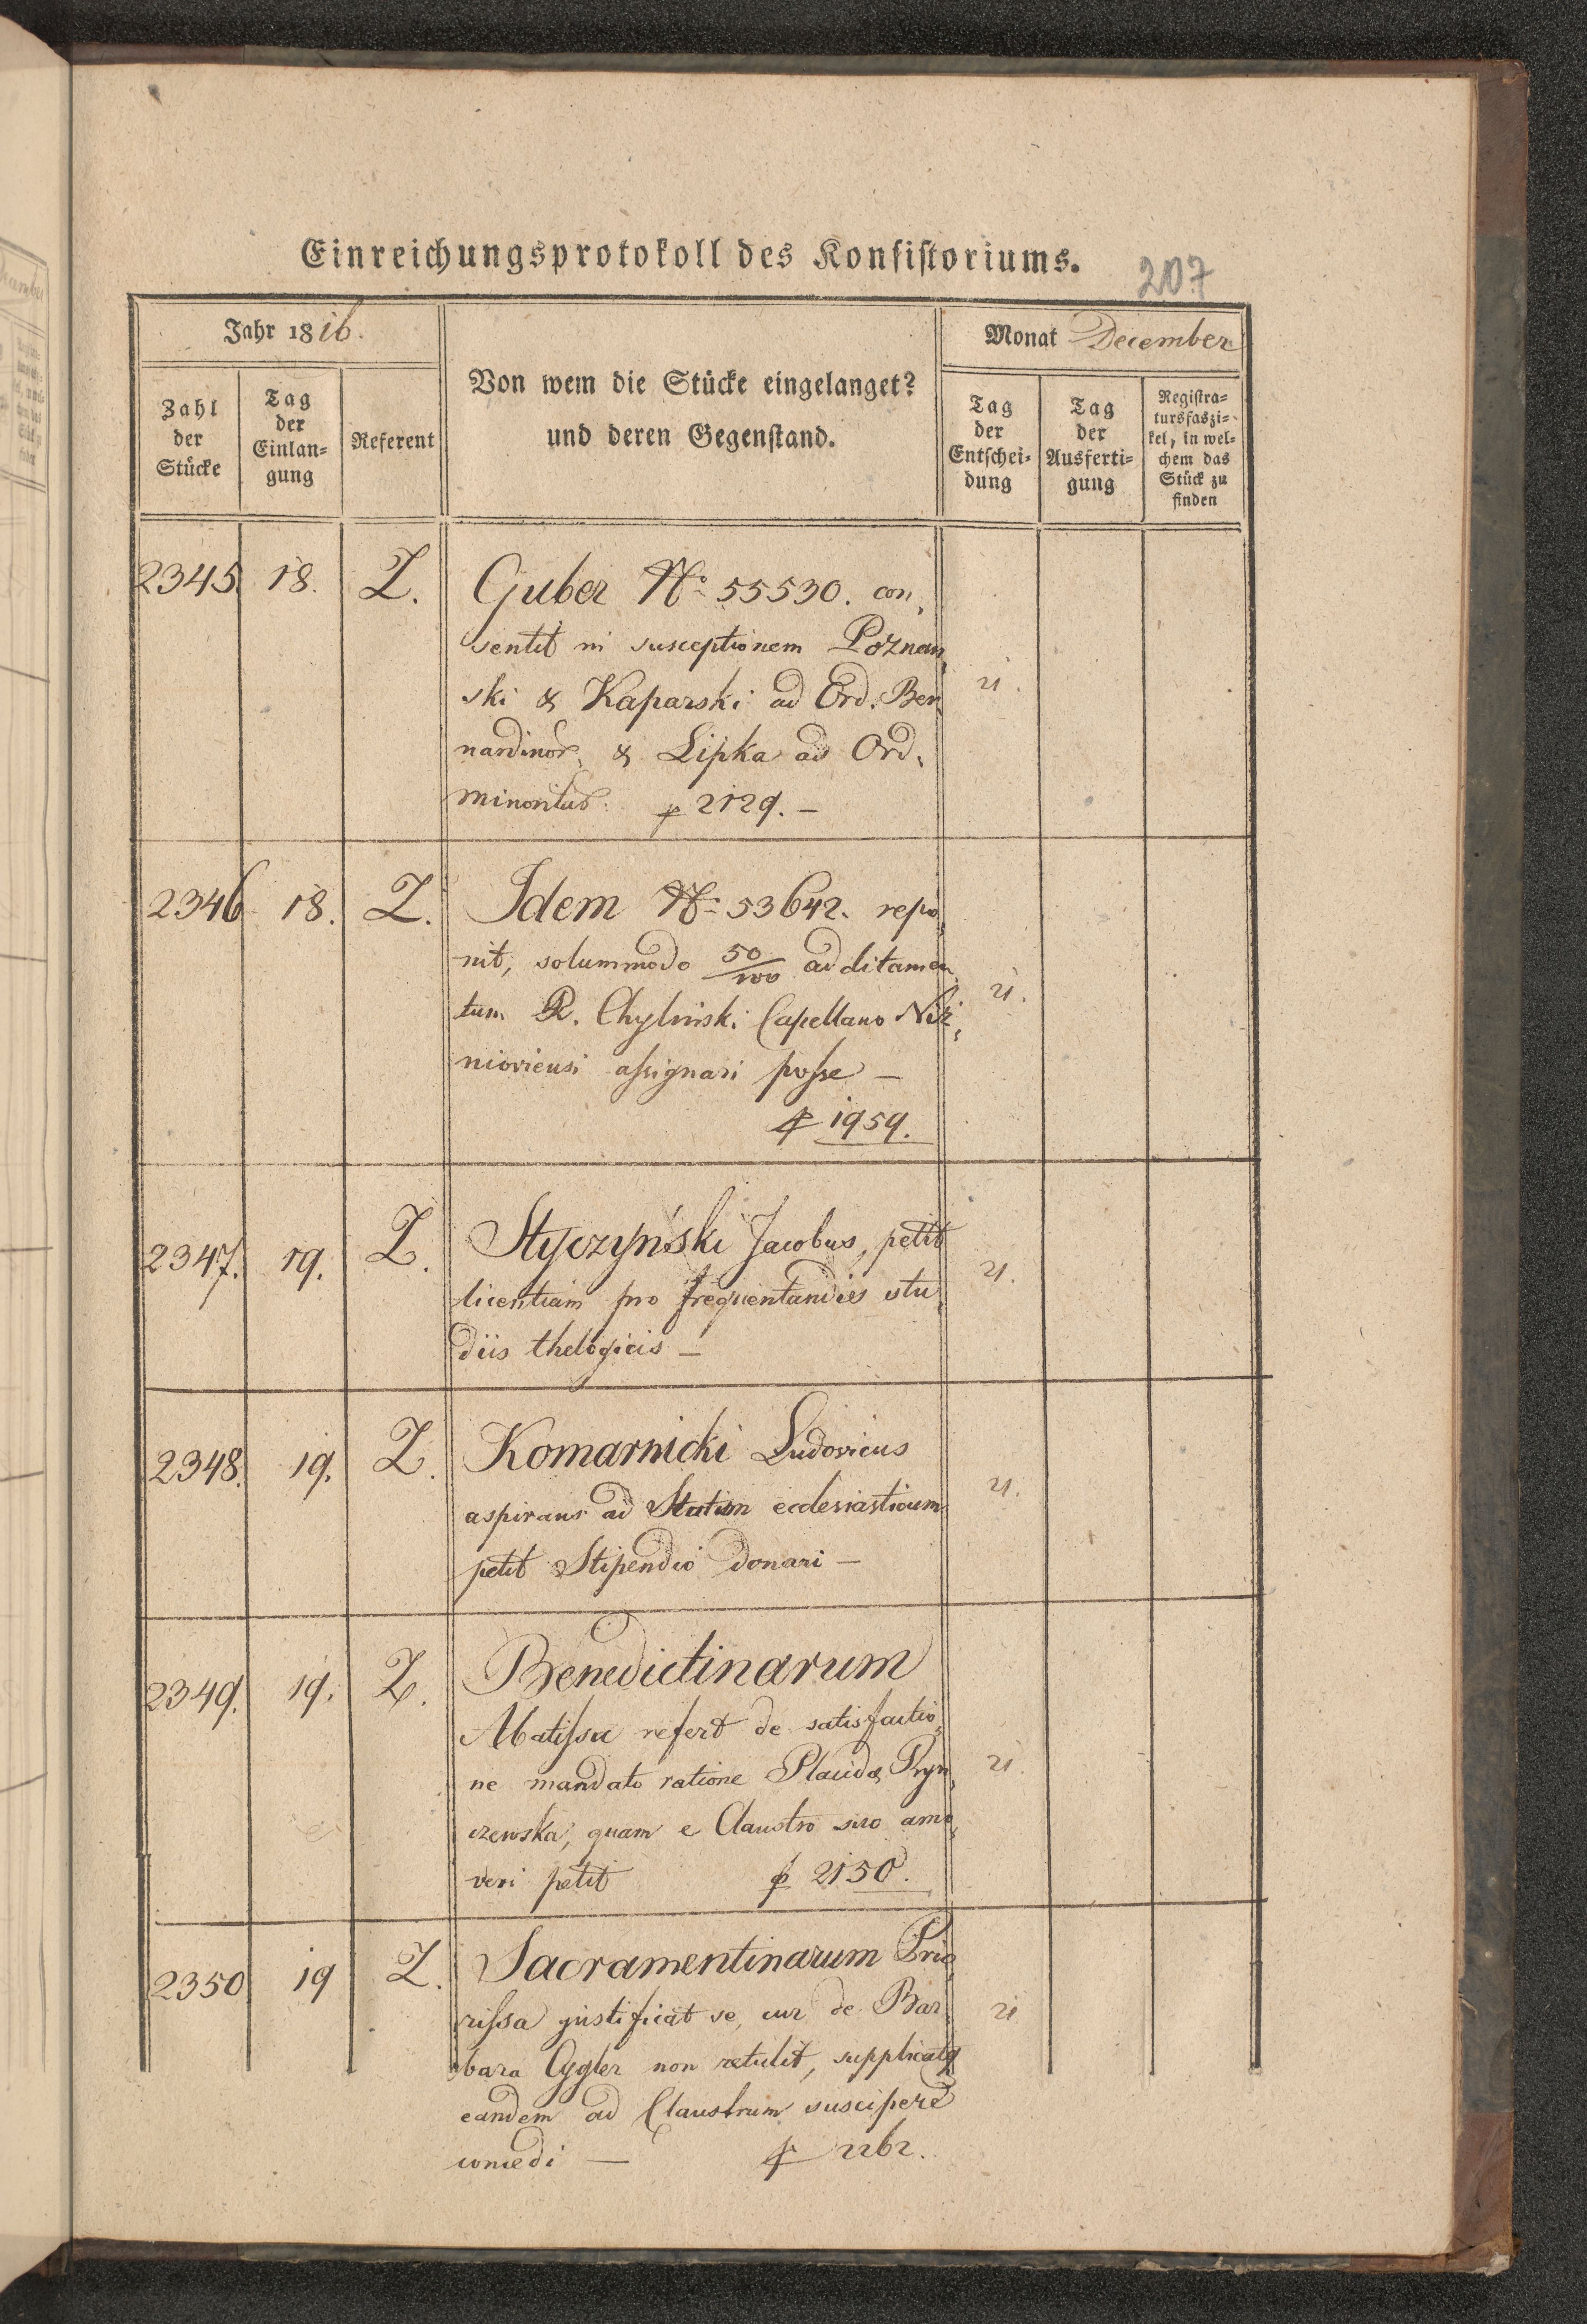 Einreichungsprotokoll des Konsistoriums.
207
Jahr 1816.
Monat December
Zahl der Stücke
Tag der Einlan=gung
Referent
Von wem die Stücke eingelanget?
und deren Gegenstand.
Tag der Entschei=dung
Tag der Ausferti=gung
Registra=tursfaszi=kel, in wel=chem das Stück zu finden
2345. 18. Z. Guber No 55530. con„
sentit in susceptionem Poznan„
ski & Kaparski ad Ord. Ber„
nardinor. & Lipka ad Ord.
minoritus. p 2129. –
21.
2346 18. Z. Idem No 53642. repo„
nit, solummodo 50/100 additamen„
tum R. Chylinski Capellano Niż„
nioviensi assignari posse –
p 1959.
21.
2347. 19. Z. Styczyński Jacobus, petit
licentiam pro frequentandis stu„
diis thelogicis –
21.
2348. 19. Z. Komarnicki Ludovicus
aspirans ad Statum ecclesiasticum
petit Stipendio donari –
21.
2349. 19. Z. Benedictinarum
Abatissa refert de satisfactio„
ne mandato ratione Placidæ Pryn„
czewska, quam e Claustro suo amo„
veri petit p 2150.
21.
2350 19 Z. Sacramentinarum Prio„
rissa justificat se, cur de Bar„
bara Cygler non retulit, supplicatq
eandem ad Claustrum suscipere
concedi – p 2262.
21